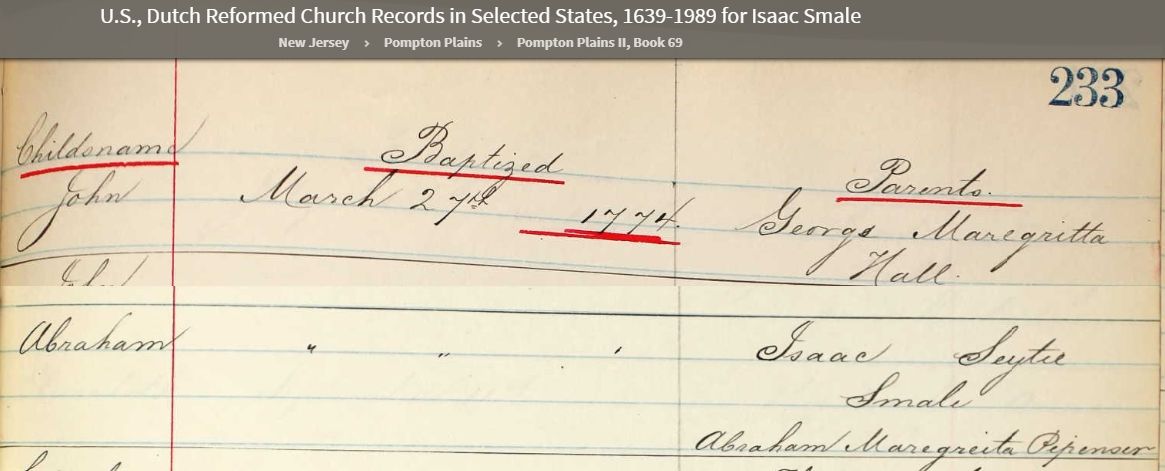 U.S., Dutch Reformed Church Records in Selected States, 1639-1989 for Isaac Smale
New Jersey > Pompton Plains > Pompton Plains II, Book 69
233
Childsname Baptized Parents.
John March 27th 1774. George Maregritta
Hall.
Abraham " " " Isaac Seytie
Smale
Abraham Maregreita Pipenser